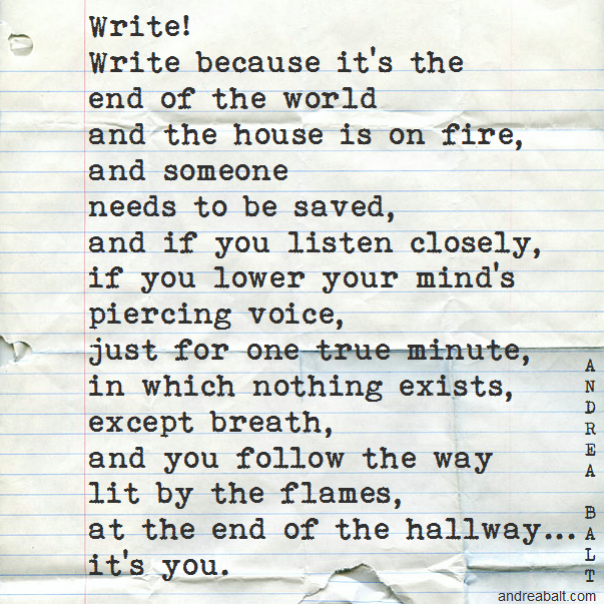 Write!
Write because it's the
end of the world
and the house is on fire,
and someone
needs to be saved,
and if you listen closely,
if you lower your mind's
piercing voice,
just for one true minute,
in which nothing exists,
except breath,
and you follow the way
lit by the flames,
at the end of the hallway...
it's you.
ANDREA BALT
andreabalt.com